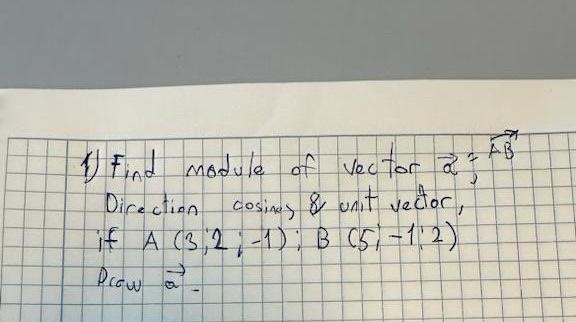 1) Find module of vector a⃗ = AB⃗;
Direction cosines & unit vector,
if A (3;2;-1); B (5;-1;2)
Draw a⃗ -